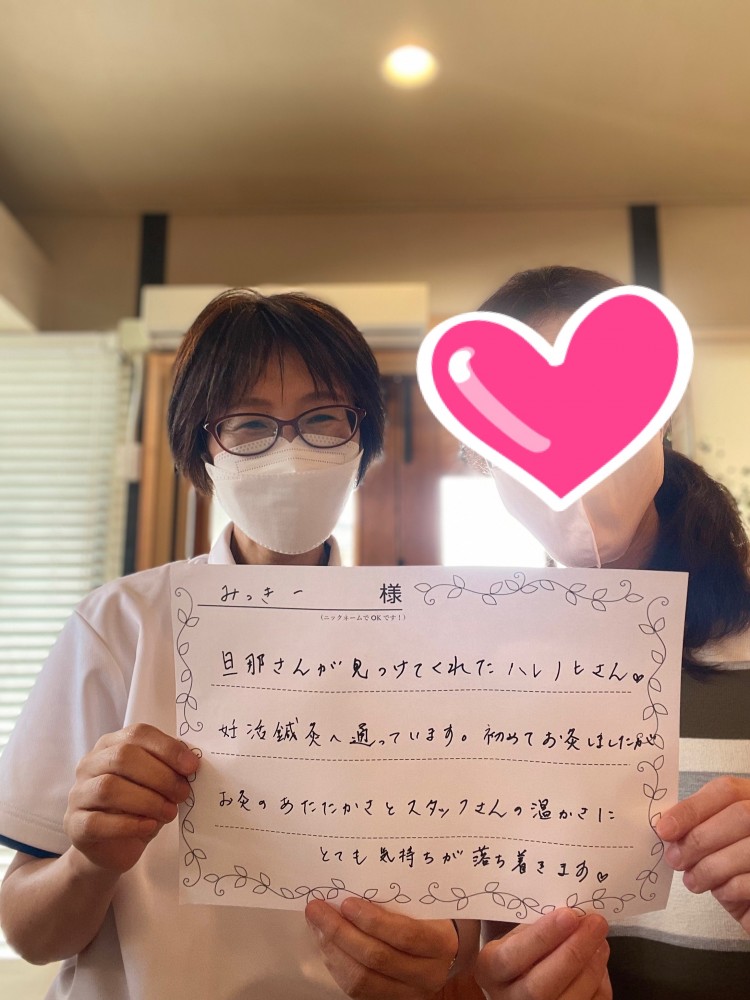 みっきー 様
(ニックネームでOKです!)
旦那さんが見つけてくれたハレノヒさん♡
妊活鍼灸へ通っています。初めてお灸しましたが
お灸のあたたかさとスタッフさんの温かさに
とても気持ちが落ち着きます♡